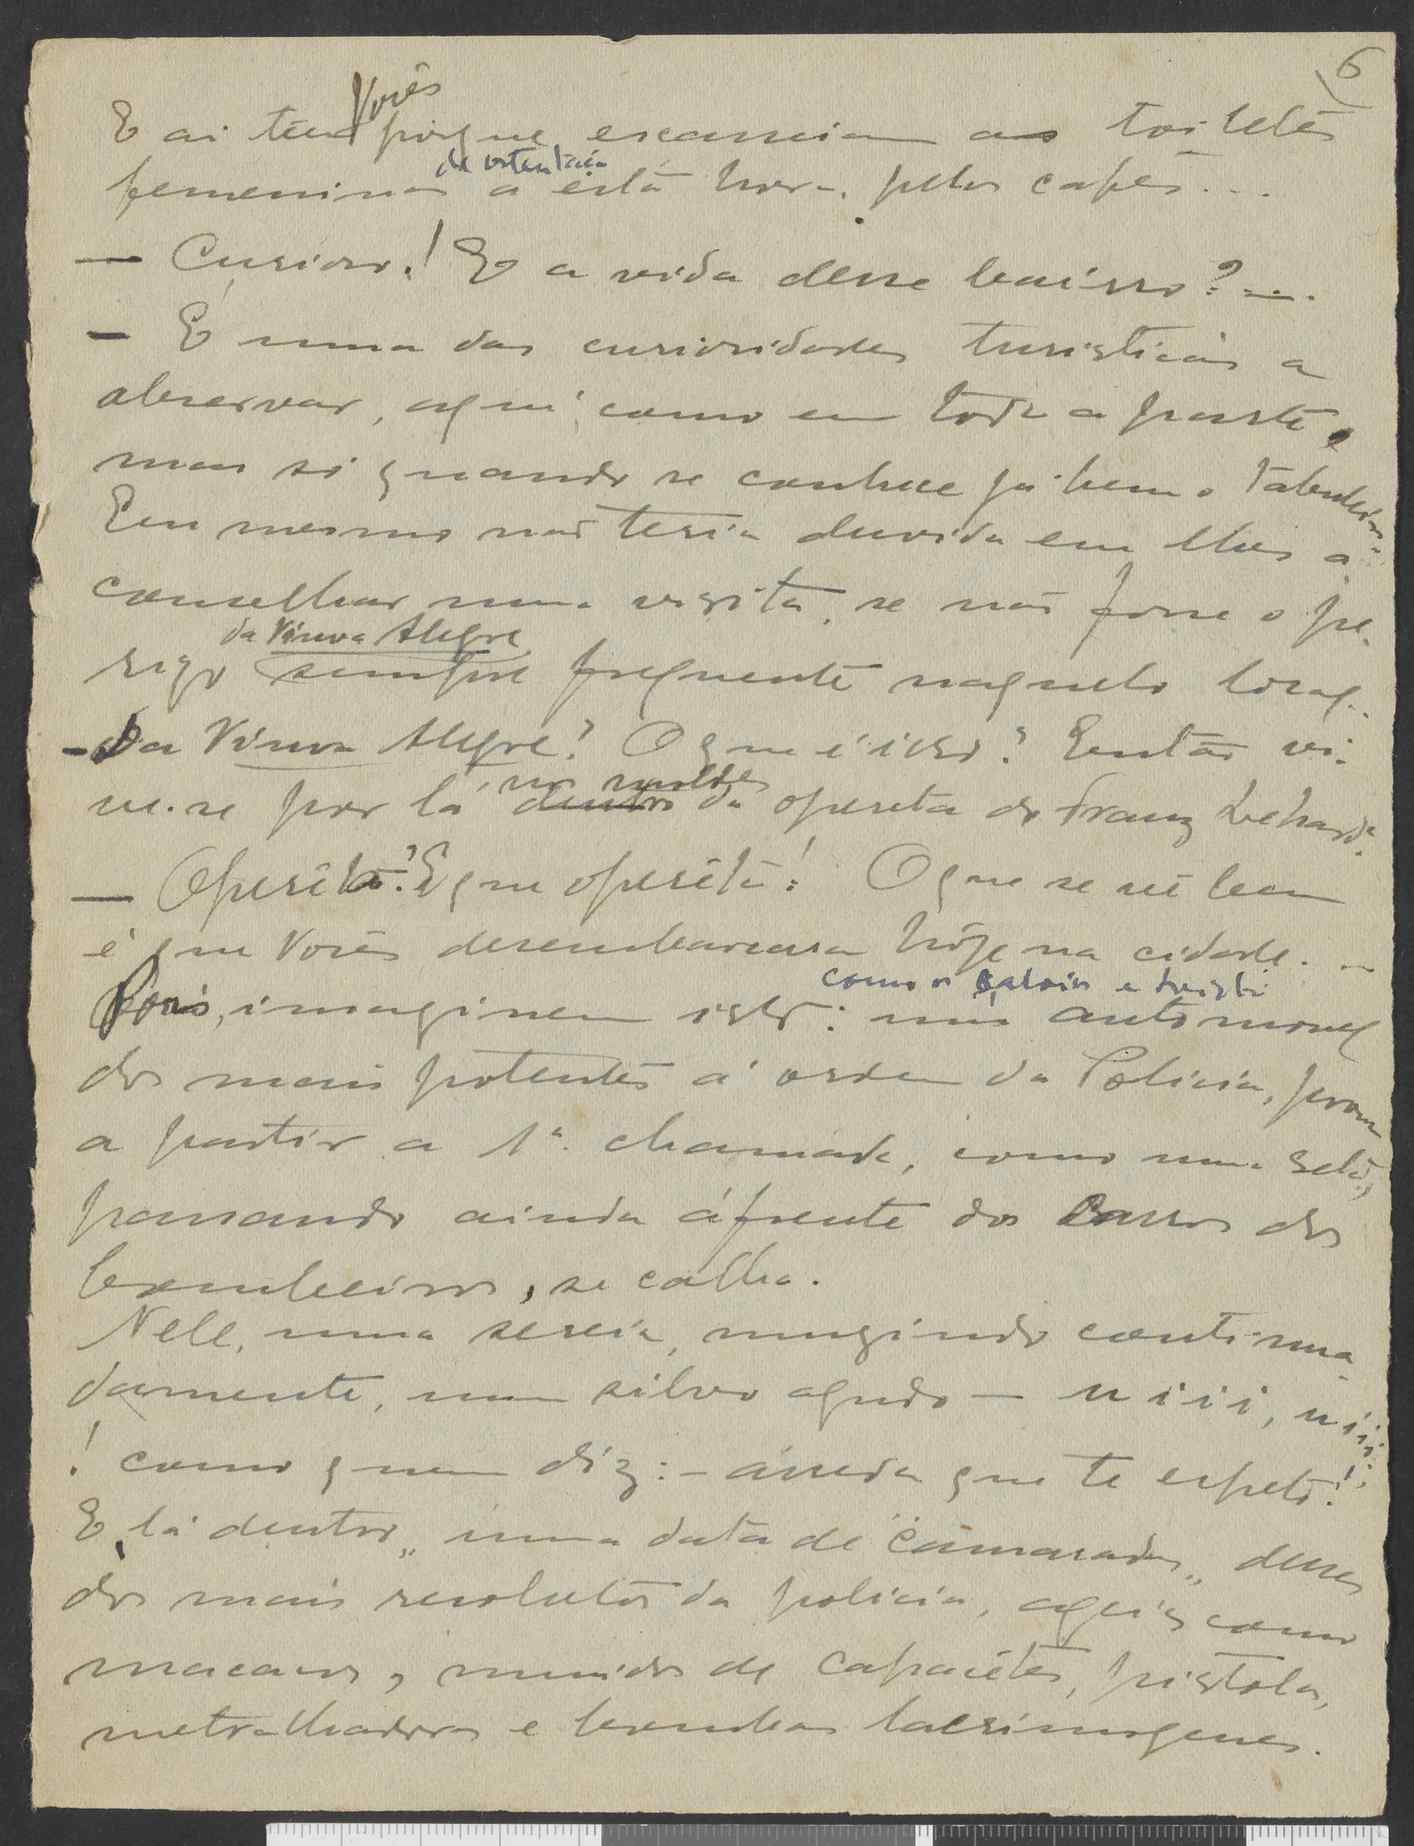 6
Vocês
E ai tem porque escasseiam as toiletes
de ostentação
femeninas a está hora, pelos cafés...
— Curioso! E a vida desse bairro?...
— É uma das curiosidades turisticas a
observar, aqui, como em toda a parte,
mas só quando se conhece já bem o
Eu mesmo não teria duvida em lhes a-
conselhar uma visita, se não fosse o pe-
da Viuva Alegre
rigo sempre frequente naquelo local.
— Da Viuva Alegre? O que é isso? Então vi-
nos moldes
ve-se por lá dentro da opereta do Franz Lehard?
— Operêta? E que operêta! O que se vê bem
é que Vocês desembarcaram hôje na cidade...
como o Catoia e triste
Pois, imaginem isto: um automovel
dos mais potentes á ordem da Policia,
a partir a 1ª chamada, como uma seta,
passando ainda á frente dos carros dos
bombeiros, se calha.
Nele, uma sereia, mugindo continua-
damente, num silvo agudo — u i i i, u i i i
! como quem diz: — arreda que te espeto!
E lá dentro, uma data de "camaradas" desses
dos mais resolutos da policia, ageis como
macacos, munidos de capacêtes, pistolas,
metralhadoras e bombas lacrimogenes.